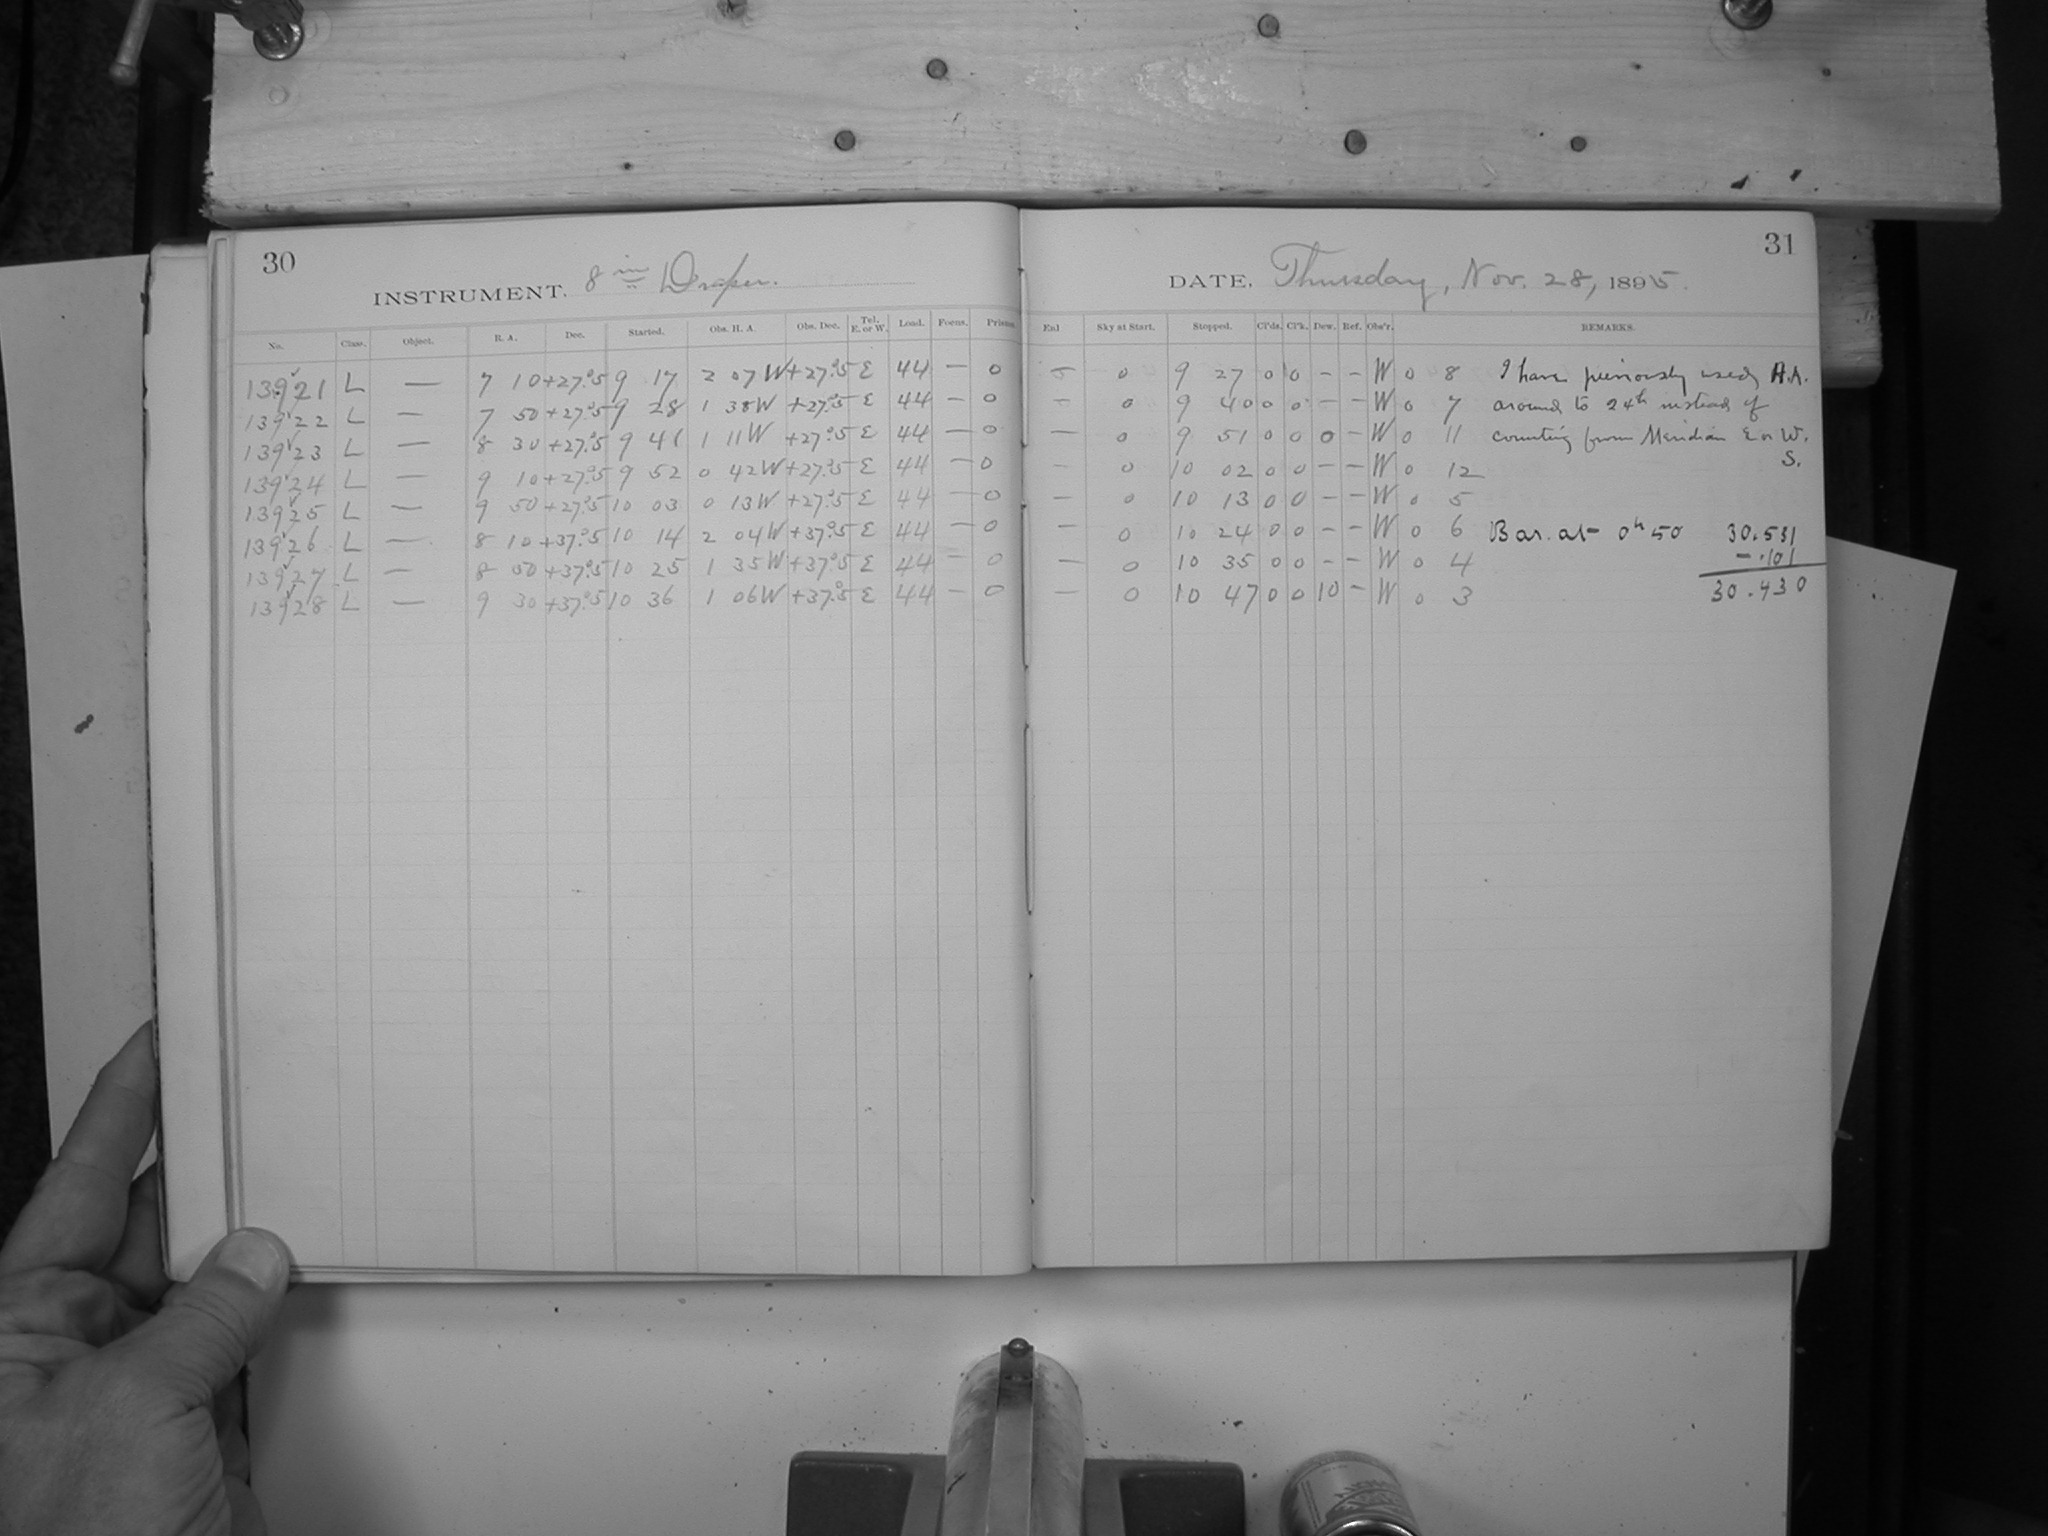 30
INSTRUMENT. 8 in Draper.
No. Class. Object. R. A. Dec. Started. Obs. H. A. Obs. Dec. Tel. E. or W. Load. Focus. Prisms
13921 L — 7 10 +27.°5 9 17 2 07 W +27.°5 E 44 — 0
13922 L — 7 50 +27.°5 9 28 1 38 W +27.°5 E 44 — 0
13923 L — 8 30 +27.°5 9 41 1 11 W +27.°5 E 44 — 0
13924 L — 9 10 +27.°5 9 52 0 42 W +27.°5 E 44 — 0
13925 L — 9 50 +27.°5 10 03 0 13 W +27.°5 E 44 — 0
13926 L — 8 10 +37.°5 10 14 2 04 W +37.°5 E 44 — 0
13927 L — 8 50 +37.°5 10 25 1 35 W +37.°5 E 44 — 0
13928 L — 9 30 +37.°5 10 36 1 06 W +37.°5 E 44 — 0
31
DATE. Thursday, Nov. 28, 1895.
Enl Sky at Start. Stopped. Cl'ds. Cl'k. Dew. Ref. Obs'r. REMARKS.
— 0 9 27 0 0 – – W 0 8 I have previously used H.A.
— 0 9 40 0 0 – – W 0 7 around to 24h instead of
— 0 9 51 0 0 0 – W 0 11 counting from Meridian E or W.
S.
— 0 10 02 0 0 – – W 0 12
— 0 10 13 0 0 – – W 0 5
— 0 10 24 0 0 – – W 0 6 Bar. at 0h 50 30.531
— 0 10 35 0 0 – – W 0 4 – .101
— 0 10 47 0 0 10 – W 0 3 30.430